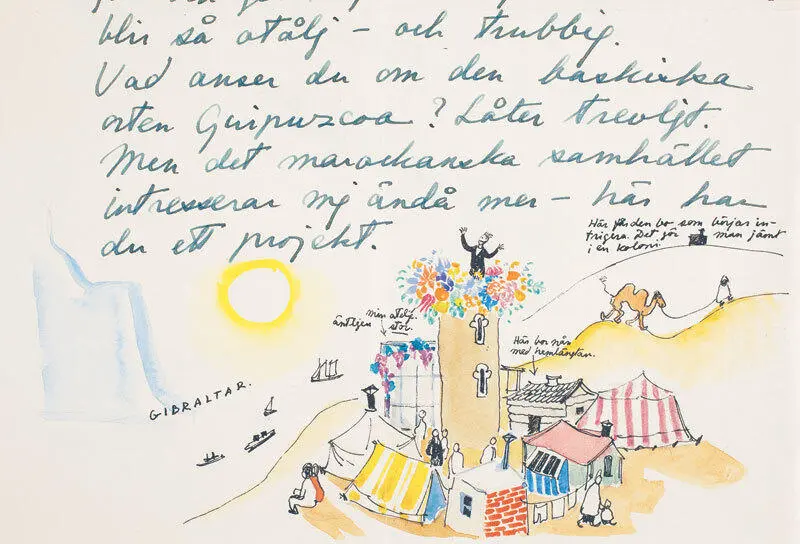 blir så otålj – och trubbig.
Vad anser du om den baskiska
orten Guipuzcoa? Låter trevligt.
Men det marockanska samhället
intresserar mej ändå mer – här har
du ett projekt.
Här får den bo som börjar in-
trigera. Det gör man jämt
i en koloni.
min atelj.
äntligen stor.
Här bor nån
med hemlängtan.
GIBRALTAR.